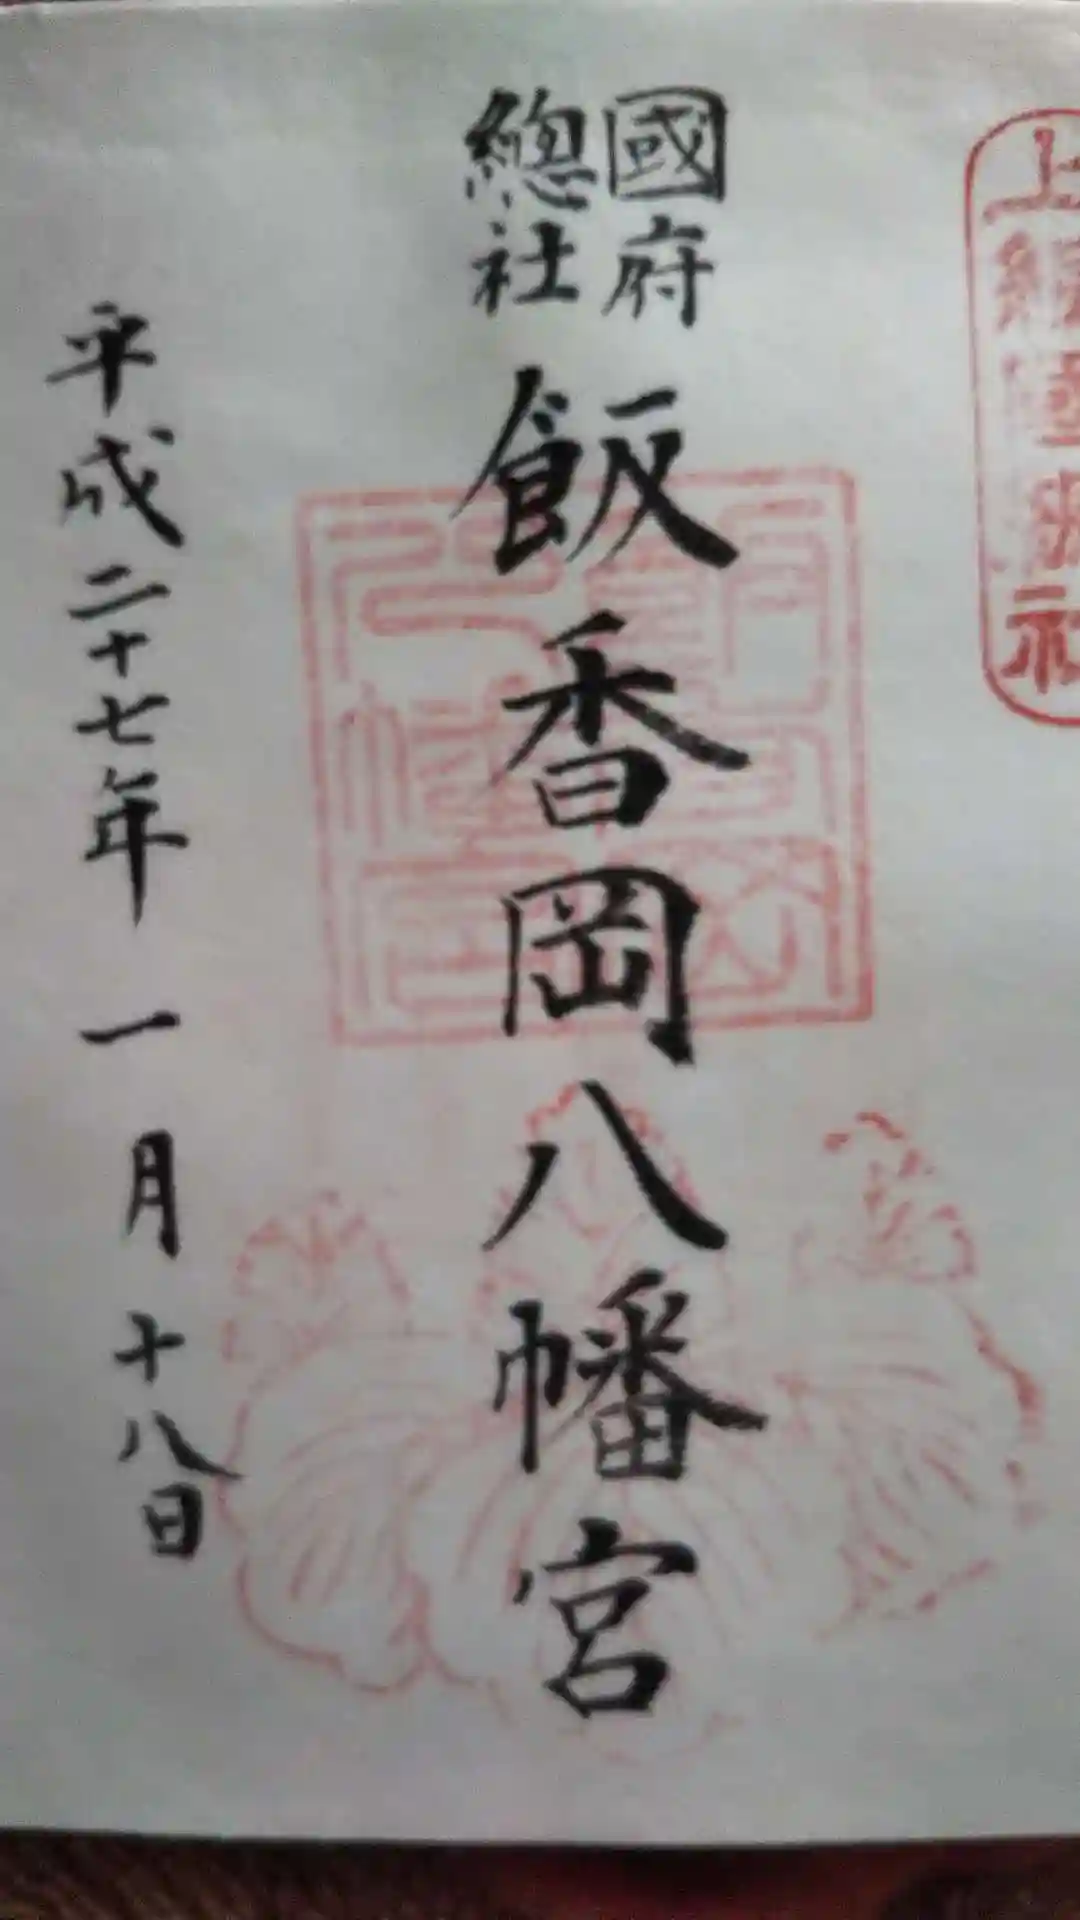 國府
總社
飯香岡八幡宮
平成二十七年一月十八日